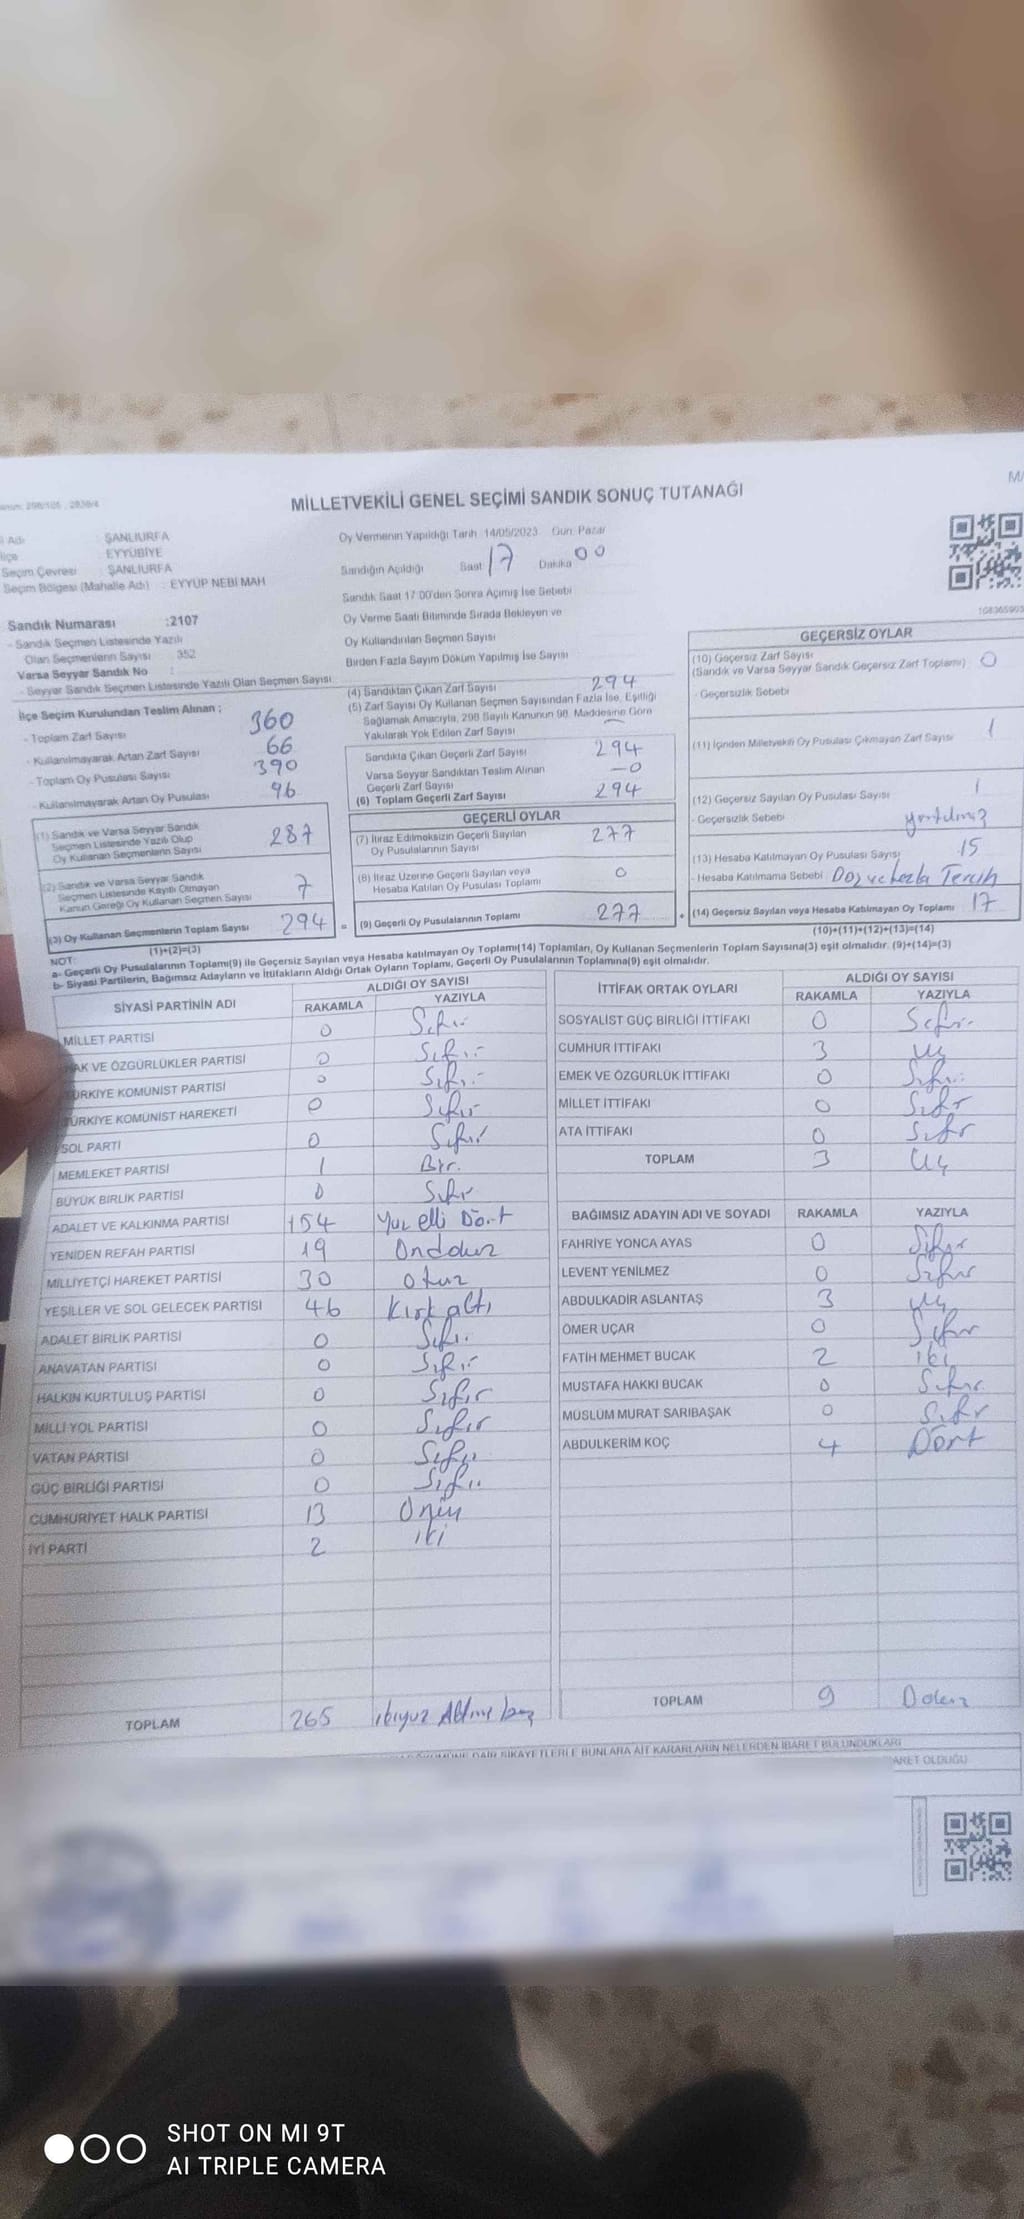 MİLLETVEKİLİ GENEL SEÇİMİ SANDIK SONUÇ TUTANAĞI
ŞANLIURFA
EYYÜBİYE
Seçim Çevresi : ŞANLIURFA
Seçim Bölgesi (Mahalle Adı) : EYYÜP NEBİ MAH
Oy Vermenin Yapıldığı Tarih 14/05/2023 Gün: Pazar
Sandığın Açıldığı Saat 17 Dakika 00
Sandık Saat 17:00'den Sonra Açımış İse Sebebi
Oy Verme Saati Bitiminde Sırada Bekleyen ve
Oy Kullandırılan Seçmen Sayısı
Birden Fazla Sayım Döküm Yapılmış İse Sayısı
Sandık Numarası :2107
- Sandık Seçmen Listesinde Yazılı
Olan Seçmenlerin Sayısı 352
Varsa Seyyar Sandık No :
- Seyyar Sandık Seçmen Listesinde Yazılı Olan Seçmen Sayısı
İlçe Seçim Kurulundan Teslim Alınan ;
- Toplam Zarf Sayısı 360
- Kullanılmayarak Artan Zarf Sayısı 66
- Toplam Oy Pusulası Sayısı 390
- Kullanılmayarak Artan Oy Pusulası 96
(1) Sandık ve Varsa Seyyar Sandık
Seçmen Listesinde Yazılı Olup
Oy Kullanan Seçmenlerin Sayısı 287
(2) Sandık ve Varsa Seyyar Sandık
Seçmen Listesinde Kayıtlı Olmayan
Kanun Gereği Oy Kullanan Seçmen Sayısı 7
(3) Oy Kullanan Seçmenlerin Toplam Sayısı 294
(1)+(2)=(3)
(4) Sandıktan Çıkan Zarf Sayısı 294
(5) Zarf Sayısı Oy Kullanan Seçmen Sayısından Fazla İse, Eşitliği
Sağlamak Amacıyla, 298 Sayılı Kanunun 98. Maddesine Göre
Yakılarak Yok Edilen Zarf Sayısı
Sandıkta Çıkan Geçerli Zarf Sayısı 294
Varsa Seyyar Sandıktan Teslim Alınan
Geçerli Zarf Sayısı 0
(6) Toplam Geçerli Zarf Sayısı 294
GEÇERLİ OYLAR
(7) İtiraz Edilmeksizin Geçerli Sayılan
Oy Pusulalarının Sayısı 277
(8) İtiraz Üzerine Geçerli Sayılan veya
Hesaba Katılan Oy Pusulası Toplamı 0
= (9) Geçerli Oy Pusulalarının Toplamı 277
GEÇERSİZ OYLAR
(10) Geçersiz Zarf Sayısı
(Sandık ve Varsa Seyyar Sandık Geçersiz Zarf Toplamı) 0
- Geçersizlik Sebebi
(11) İçinden Milletvekili Oy Pusulası Çıkmayan Zarf Sayısı 1
(12) Geçersiz Sayılan Oy Pusulası Sayısı 1
- Geçersizlik Sebebi
(13) Hesaba Katılmayan Oy Pusulası Sayısı 15
- Hesaba Katılmama Sebebi
+ (14) Geçersiz Sayılan veya Hesaba Katılmayan Oy Toplamı 17
(10)+(11)+(12)+(13)=(14)
NOT:
a- Geçerli Oy Pusulalarının Toplamı(9) ile Geçersiz Sayılan veya Hesaba katılmayan Oy Toplamı(14) Toplamları, Oy Kullanan Seçmenlerin Toplam Sayısına(3) eşit olmalıdır. (9)+(14)=(3)
b- Siyasi Partilerin, Bağımsız Adayların ve İttifakların Aldığı Ortak Oyların Toplamı, Geçerli Oy Pusulalarının Toplamına(9) eşit olmalıdır.
SİYASİ PARTİNİN ADI ALDIĞI OY SAYISI
RAKAMLA YAZIYLA
MİLLET PARTİSİ 0 Sıfır
HAK VE ÖZGÜRLÜKLER PARTİSİ 0 Sıfır
TÜRKİYE KOMÜNİST PARTİSİ 0 Sıfır
TÜRKİYE KOMÜNİST HAREKETİ 0 Sıfır
SOL PARTİ 0 Sıfır
MEMLEKET PARTİSİ 1 Bir.
BÜYÜK BİRLİK PARTİSİ 0 Sıfır
ADALET VE KALKINMA PARTİSİ 154 Yüz elli Dört
YENİDEN REFAH PARTİSİ 19 Ondokuz
MİLLİYETÇİ HAREKET PARTİSİ 30 otuz
YEŞİLLER VE SOL GELECEK PARTİSİ 46 Kırk altı
ADALET BİRLİK PARTİSİ 0 Sıfır
ANAVATAN PARTİSİ 0 Sıfır
HALKIN KURTULUŞ PARTİSİ 0 Sıfır
MİLLİ YOL PARTİSİ 0 Sıfır
VATAN PARTİSİ 0 Sıfır
GÜÇ BİRLİĞİ PARTİSİ 0 Sıfır
CUMHURİYET HALK PARTİSİ 13 Onüç
İYİ PARTİ 2 iki
TOPLAM 265 ikiyüz Altmış beş
İTTİFAK ORTAK OYLARI ALDIĞI OY SAYISI
RAKAMLA YAZIYLA
SOSYALİST GÜÇ BİRLİĞİ İTTİFAKI 0 Sıfır
CUMHUR İTTİFAKI 3 üç
EMEK VE ÖZGÜRLÜK İTTİFAKI 0 Sıfır
MİLLET İTTİFAKI 0 Sıfır
ATA İTTİFAKI 0 Sıfır
TOPLAM 3 üç
BAĞIMSIZ ADAYIN ADI VE SOYADI RAKAMLA YAZIYLA
FAHRİYE YONCA AYAS 0 Sıfır
LEVENT YENİLMEZ 0 Sıfır
ABDULKADİR ASLANTAŞ 3 üç
ÖMER UÇAR 0 Sıfır
FATİH MEHMET BUCAK 2 iki
MUSTAFA HAKKI BUCAK 0 Sıfır
MÜSLÜM MURAT SARIBAŞAK 0 Sıfır
ABDULKERİM KOÇ 4 Dört
TOPLAM 9 Dokuz
DAİR ŞİKAYETLERLE BUNLARA AİT KARARLARIN NELERDEN İBARET BULUNDUKLARI
OLDUĞU
SHOT ON MI 9T
AI TRIPLE CAMERA